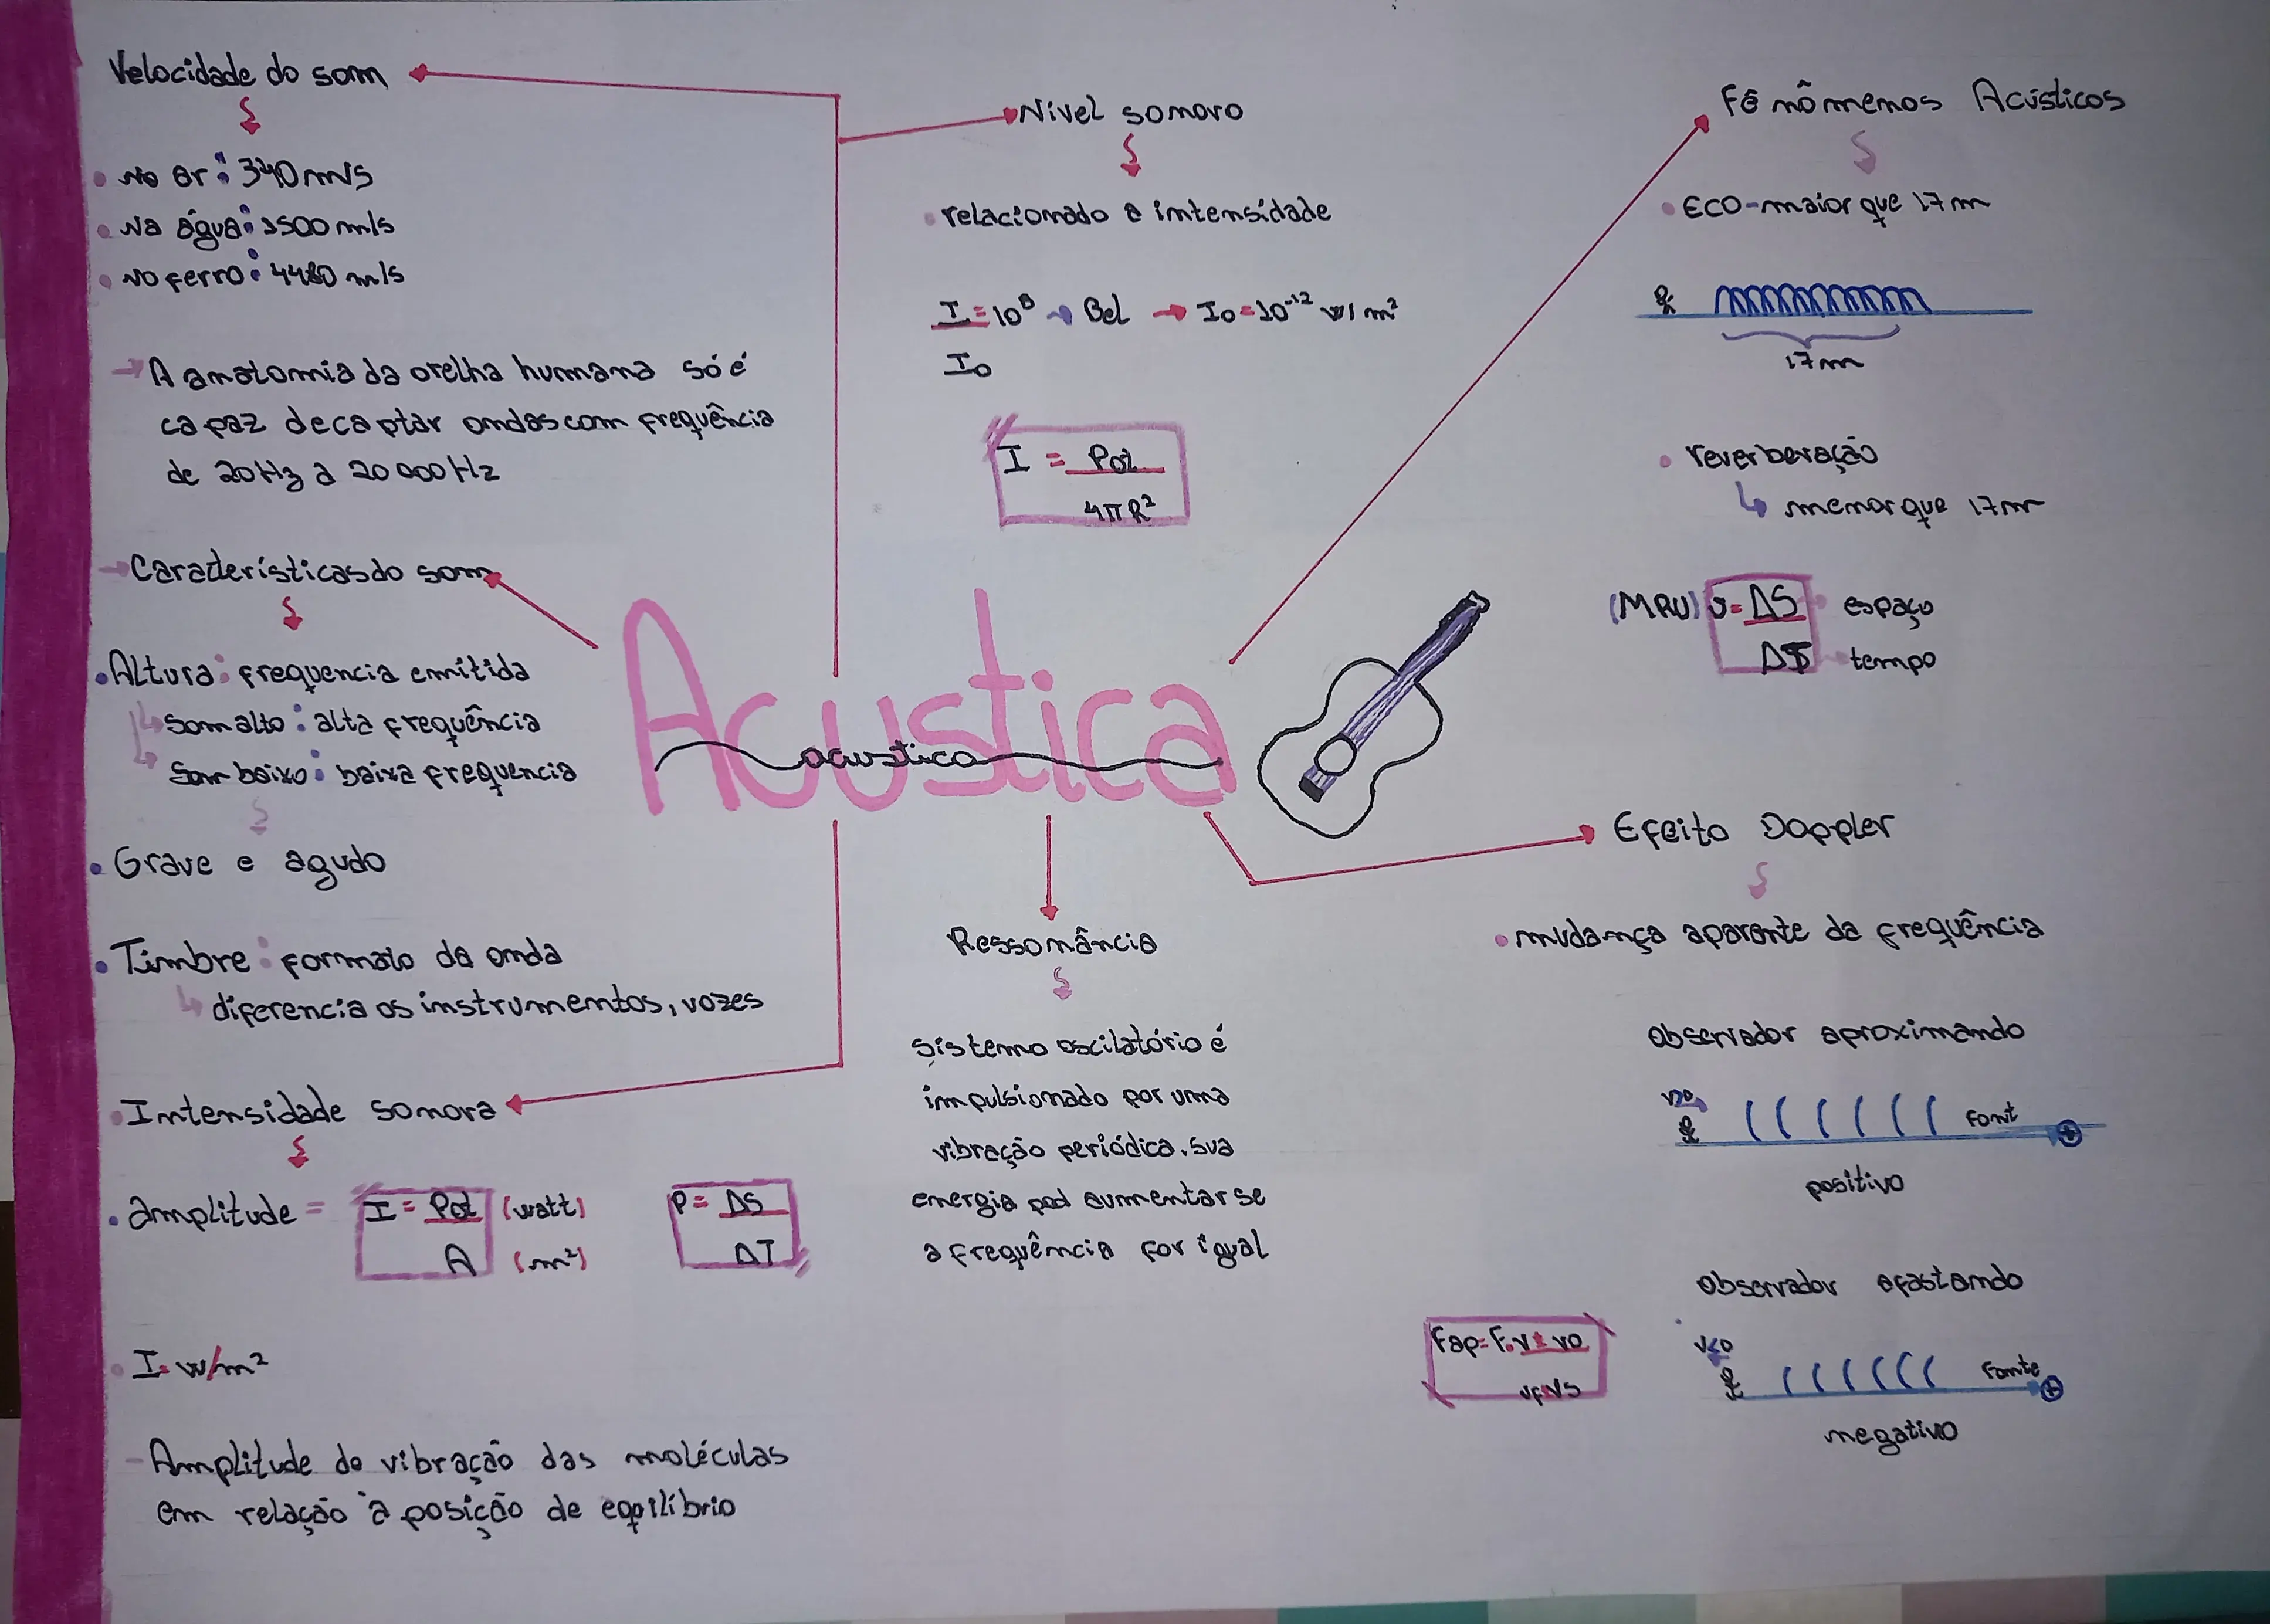 Velocidade do som
No ar: 340 m/s
Na água: 1500 m/s
No ferro: 4480 m/s
→ A anatomia da orelha humana só é
capaz de captar ondas com frequência
de 20 Hz a 20 000 Hz
→ Características do som
• Altura: frequencia emitida
↳ Som alto: alta frequência
↳ Som baixo: baixa frequencia
• Grave e agudo
• Timbre: formato da onda
↳ diferencia os instrumentos, vozes
• Intensidade sonora
• amplitude = I = Pot (watt)
A (m²)
P = ΔS
ΔT
• I = W/m²
- Amplitude de vibração das moléculas
em relação à posição de eqpilíbrio
Nível sonoro
• relacionado a intensidade
I = 10ᴮ → Bel → Io = 10⁻¹² W/m²
Io
I = Pot
4πR²
Acustica
acustica
Ressonância
sistema oscilatório é
impulsionado por uma
vibração periódica. Sua
energia pod aumentar se
a frequência for igual
Fênômenos Acústicos
• Eco - maior que 17 m
17 m
• reverberação
↳ menor que 17 m
(MRU) v = ΔS espaço
ΔT tempo
Efeito Doppler
• mudança aparente da frequência
Observador aproximando
v>0
font
positivo
Observador afastando
v<0
fonte
negativo
Fap = F. v ± vo